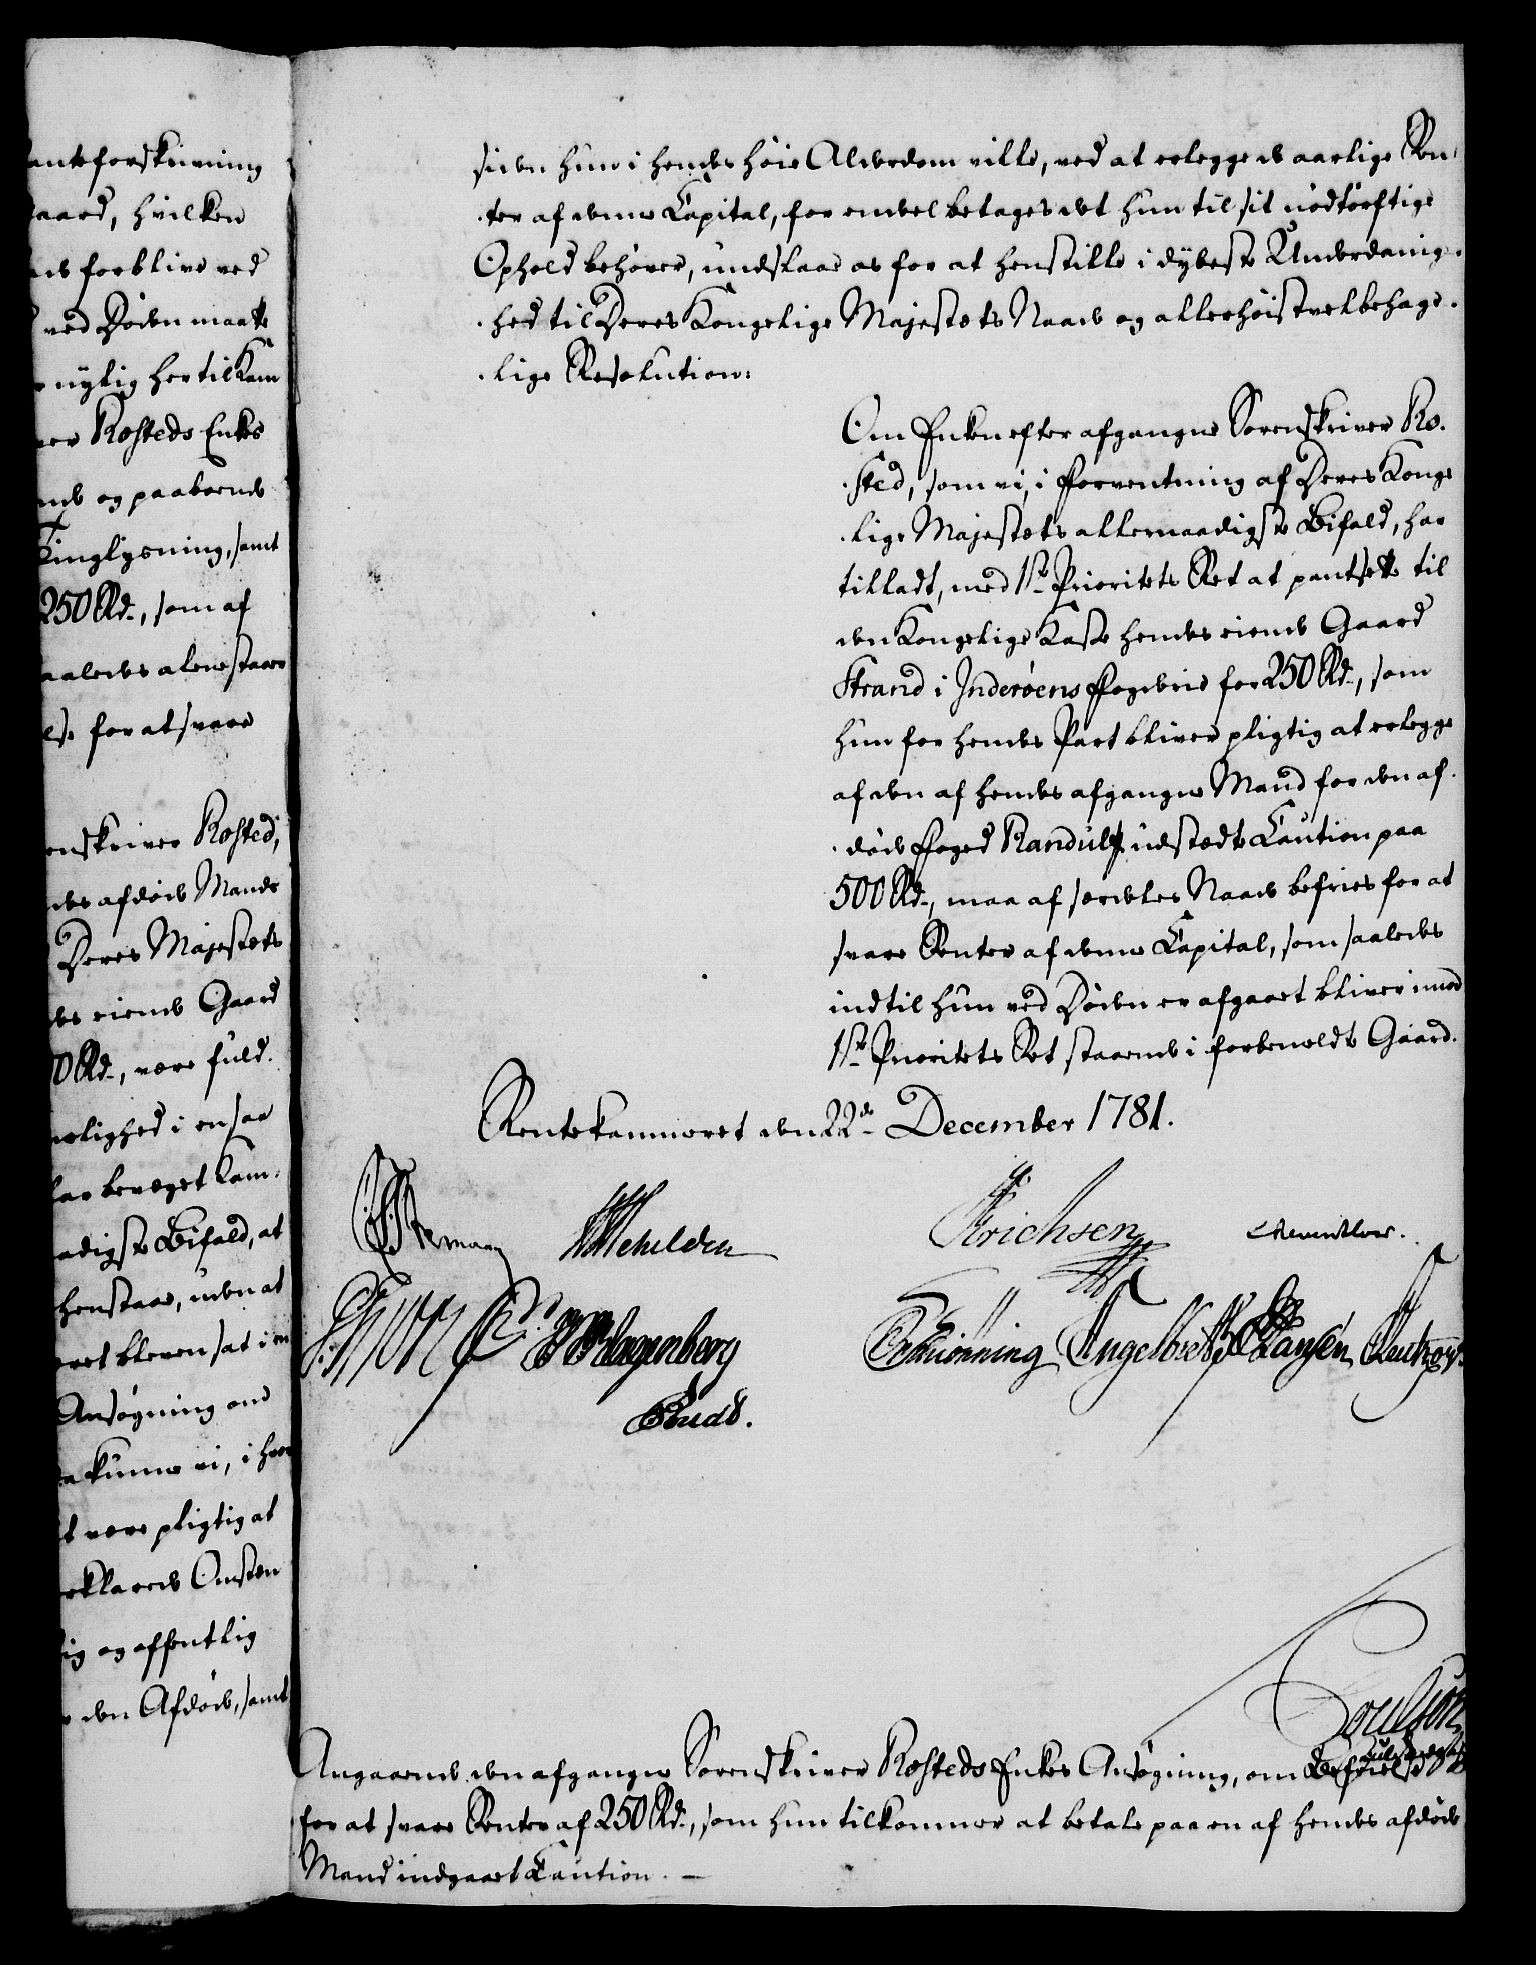 anteforskrivning
aard, hvilken
forblive ved
ved Döden maatte
nylig her til Kam
Rosteds Enkes
og paaboende
Tinglysning, samt
250 Rd., som af
aaledes alene staaer
for at svare
enskriver Rosted,
des afdøde Mands
Deres Majestæts
des eiende Gaard
0 Rd., være fuld.
melighed i en saa
har bevæget Kam:
adigste Bifald, at
henstaae, uden at
bleven sat i en
Ansøgning om
kunne vi, i hvor
være pligtig at
erklarede Omstæn
lig og offentlig
den Afdøde, samt
siden hun i hendes høie Alderdom ville, ved at erlegge de aarlige Ren
ter af denne Capital, for endeel betages det hun til sit nødtørftige
Ophold behøver, undslaae os for at henstille i dybeste Underdanig.
hed til Deres Kongelige Majestæts Naade og allerhøistvelbehage.
lige Resolution:
Om Enken efter afgangne Sorenskriver Ro.
sted, som vi, i Forventning af Deres Konge
lige Majestæts allernaadigste Bifald, har
tilladt, med 1ste Prioritets Ret at pantsette til
den Kongelige Kasse hendes eiende Gaard
Strand i Inderöens Fogderie for 250 Rd., som
hun for hendes Part bliver pligtig at erlegge
af den af hendes afgangne Mand for den af.
døde Foged Randulf udstædte Caution paa
500 Rd., maa af særdeles Naade befries for at
svare Renter af denne Capital, som saaledes
indtil hun ved Döden er afgaaet bliver imod
1ste Prioritets Ret staaende i forbemeldte Gaard.
Rentekammeret den 22de December 1781.
Erichsen
Hagenberg
Schiønning Engelbret Hansen
Angaaende den afgangne Sorenskriver Rosteds Enkes Ansøgning, om Befrielse
for at svare Renter af 250 Rd., som hun tilkommer at betale paa en af hendes afdøde
Mand indgaaet Caution. —